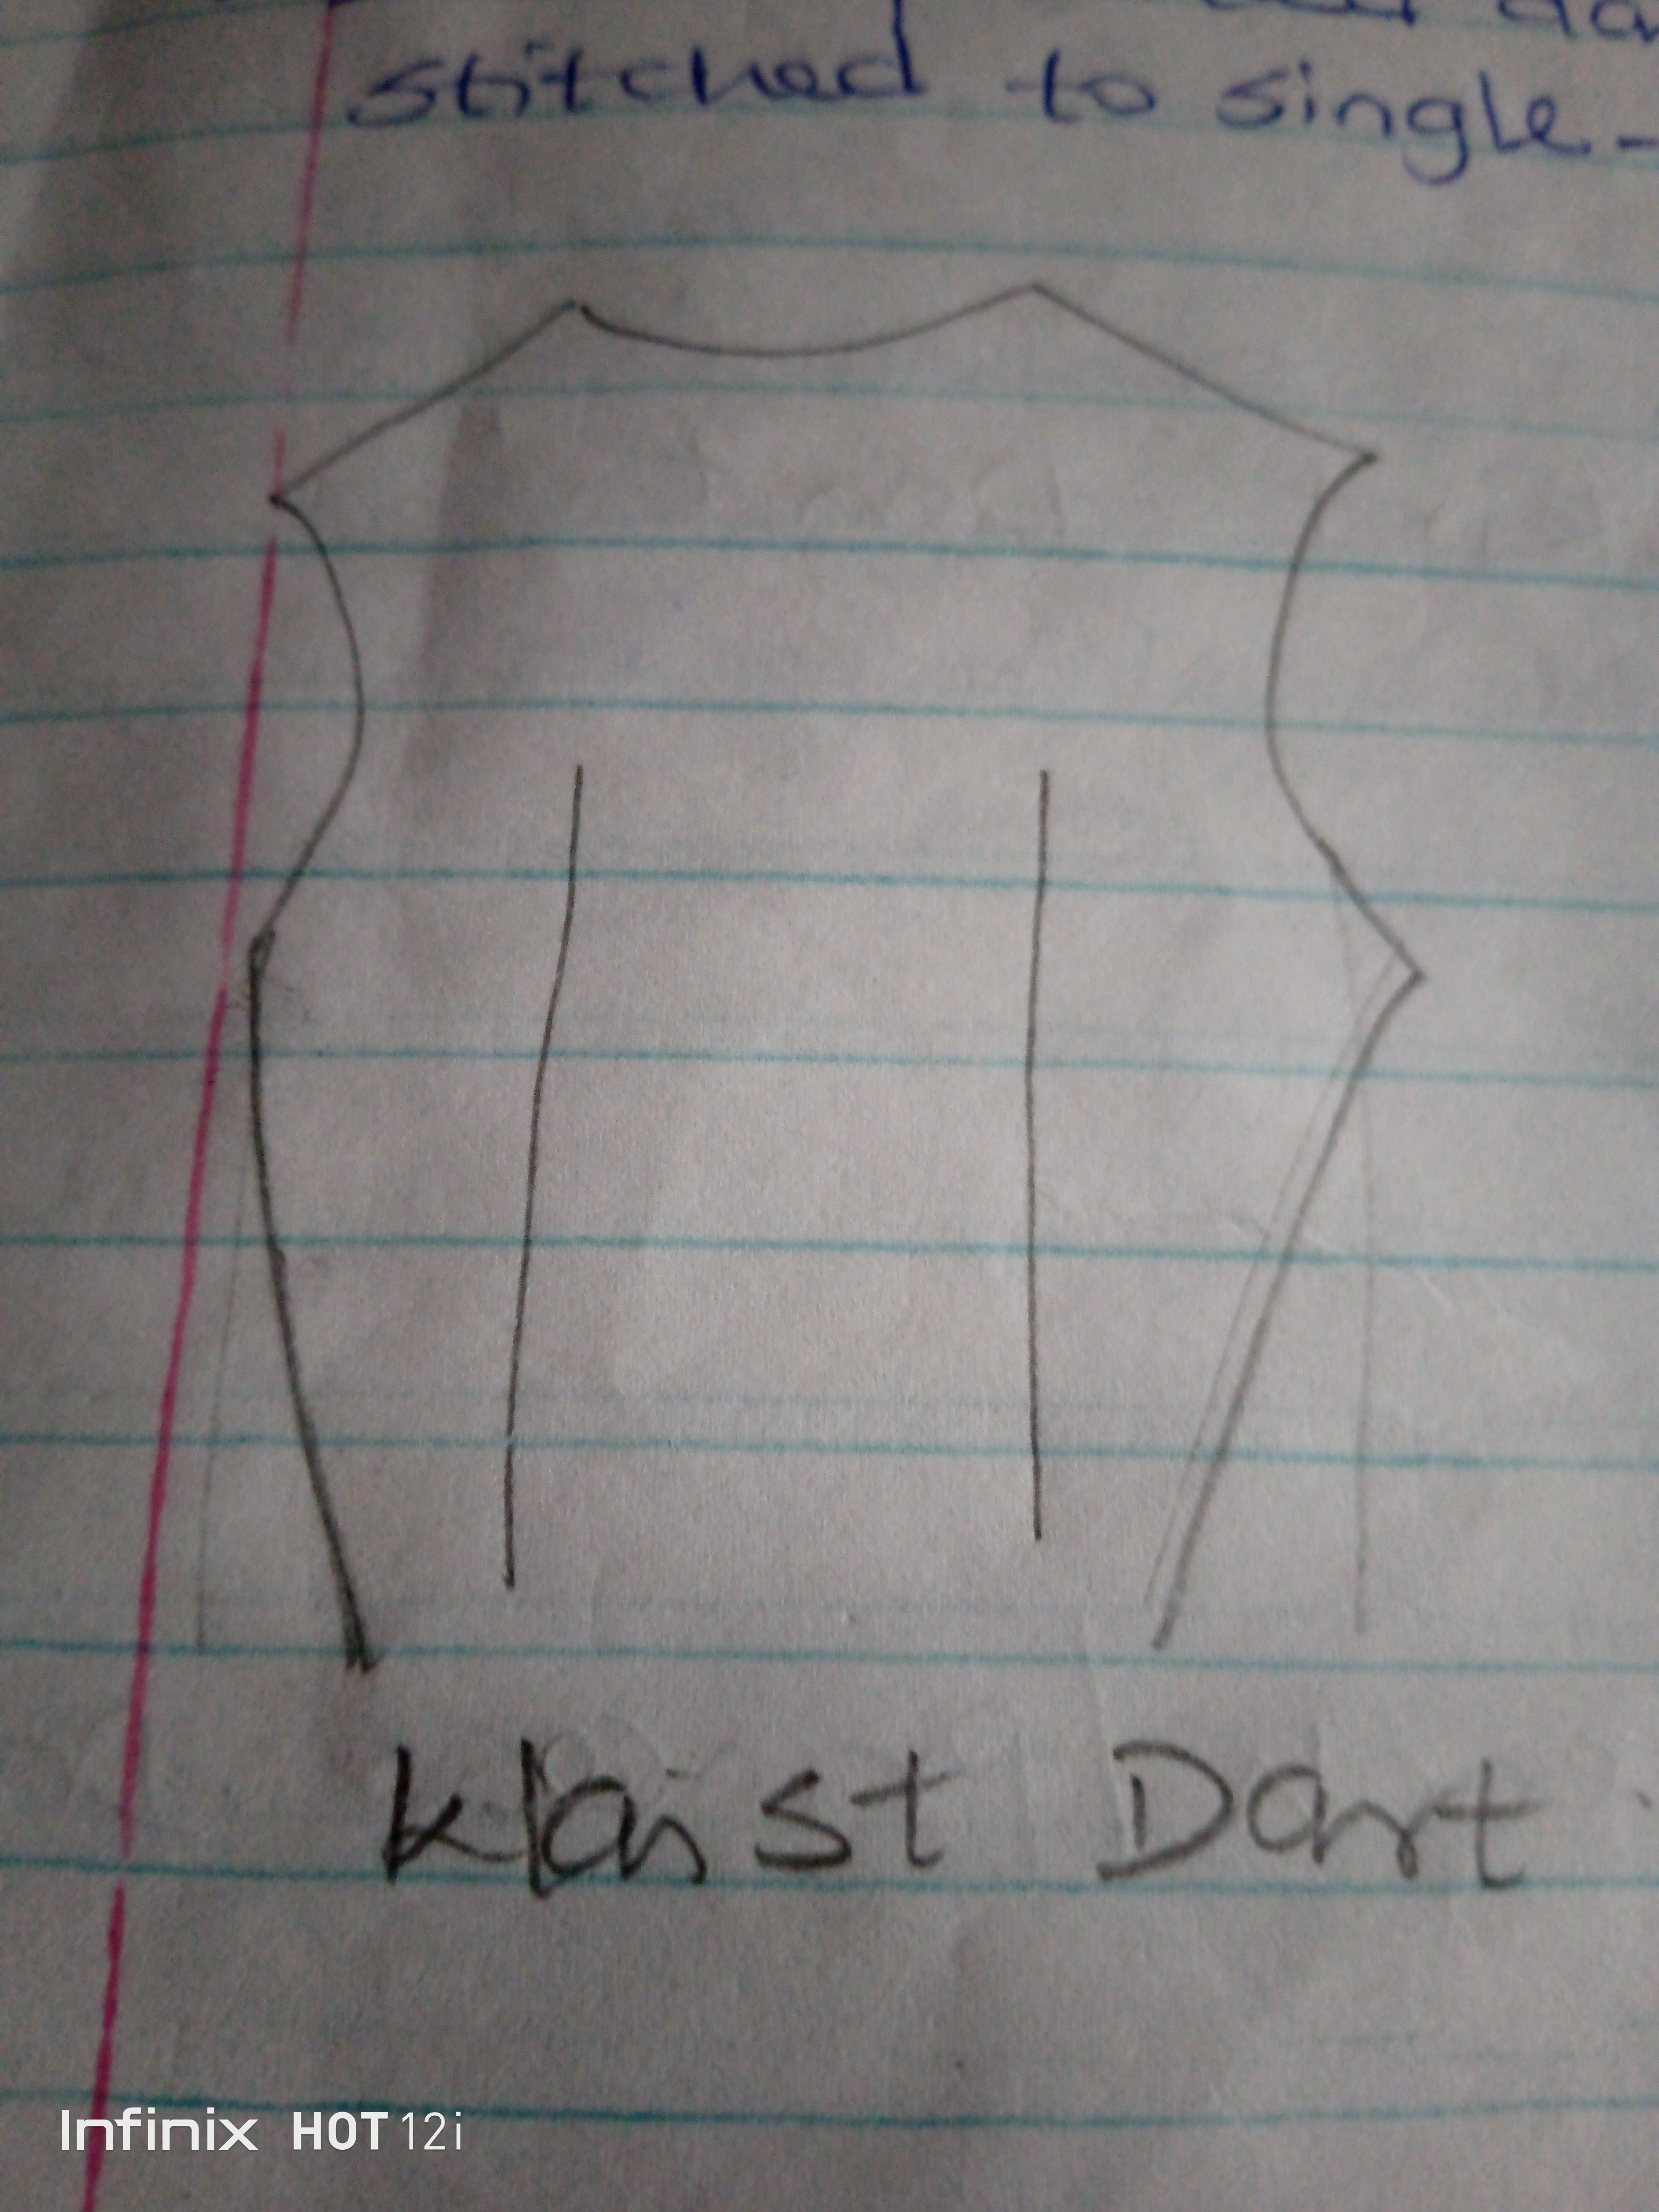 stitched to single-
Waist Dart
Infinix HOT 12i